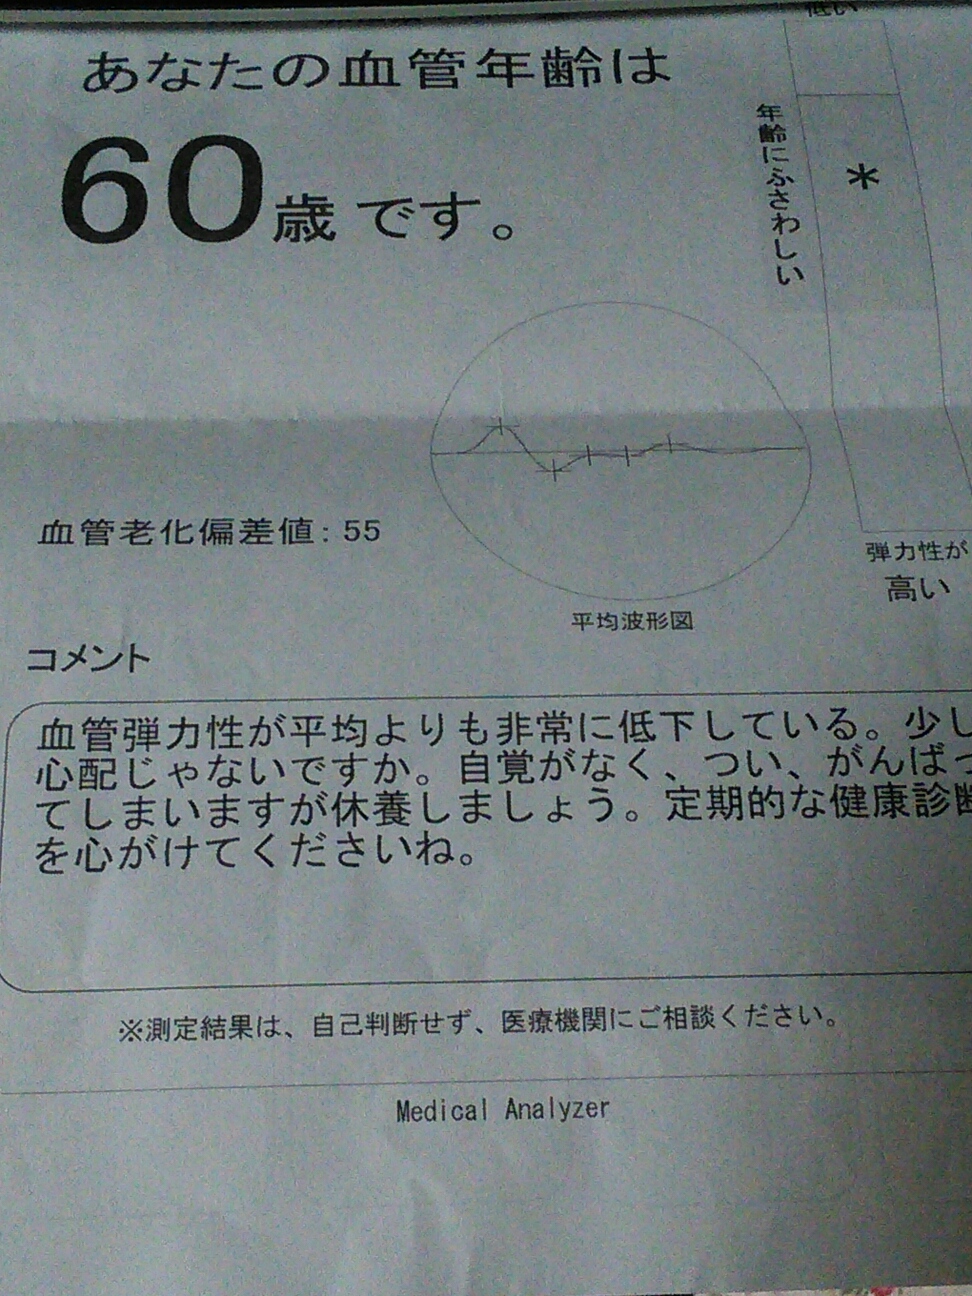 あなたの血管年齢は
60歳 です。
低い
年齢にふさわしい
*
弾力性が
高い
平均波形図
血管老化偏差値: 55
コメント
血管弾力性が平均よりも非常に低下している。少し
心配じゃないですか。自覚がなく、つい、がんばっ
てしまいますが休養しましょう。定期的な健康診断
を心がけてくださいね。
※測定結果は、自己判断せず、医療機関にご相談ください。
Medical Analyzer